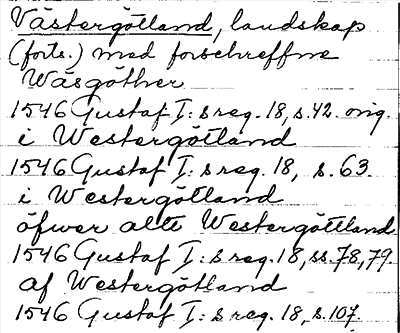 Västergötland, landskap
(forts.) med forschreffne
Wäsgöther
1546 Gustaf I:s reg. 18, s. 42. orig.
i Westergötland
1546 Gustaf I:s reg. 18, s. 63.
i Westergötland
öfwer alltt Westergöttland
1546 Gustaf I:s reg. 18, ss. 78, 79.
af Westergötland
1546 Gustaf I:s reg. 18, s. 107.